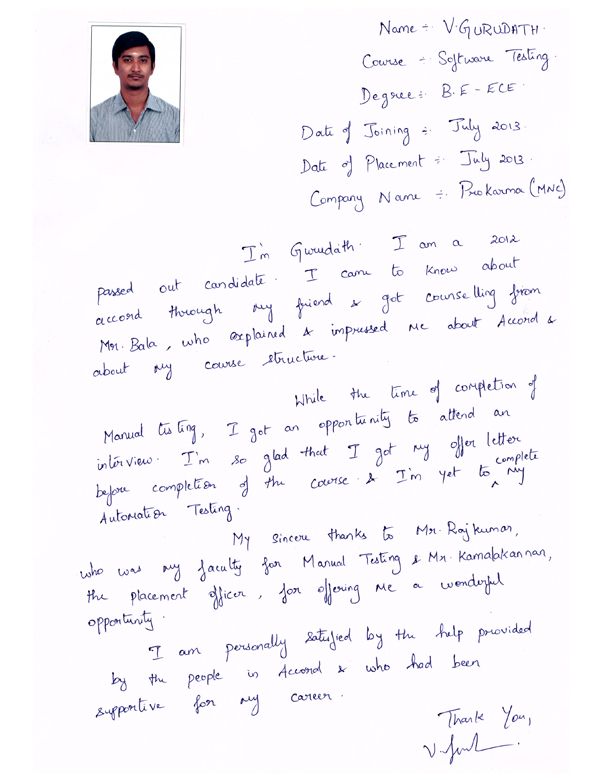 Name ÷ V. GURUDATH.
Course ÷ Software Testing.
Degree ÷ B.E - ECE
Date of Joining ÷ July 2013.
Date of Placement ÷ July 2013.
Company Name ÷ Prokarma (MNC)
I'm Gurudath. I am a 2012
passed out candidate. I came to know about
accord through my friend & got counselling from
Mr. Bala, who explained & impressed me about Accord &
about my course structure.
While the time of completion of
Manual testing, I got an opportunity to attend an
interview. I'm so glad that I got my offer letter
before completion of the course & I'm yet to complete my
Automation Testing.
My sincere thanks to Mr. Rajkumar,
who was my faculty for Manual Testing & Mr. Kamalakannan,
the placement officer, for offering me a wonderful
opportunity.
I am personally satisfied by the help provided
by the people in Accord & who had been
supportive for my career.
Thank You,